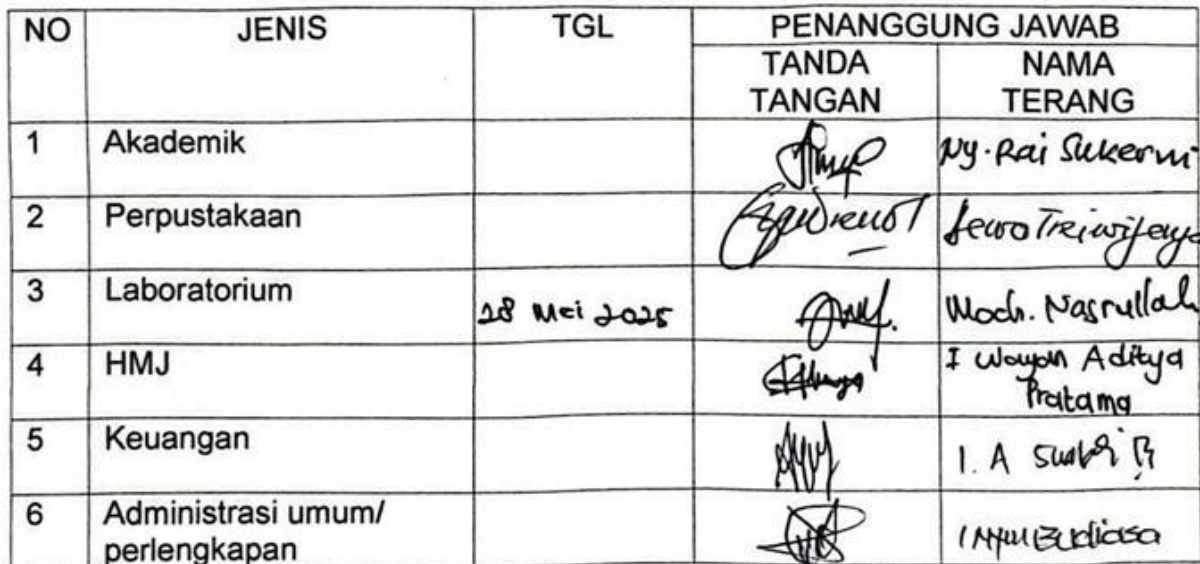 NO JENIS TGL PENANGGUNG JAWAB
TANDA TANGAN NAMA TERANG
1 Akademik Ny. Rai Sukerni
2 Perpustakaan
3 Laboratorium 28 Mei 2025 Moch. Nasrullah
4 HMJ I Wayan Aditya Pratama
5 Keuangan I. A
6 Administrasi umum/
perlengkapan Budiasa